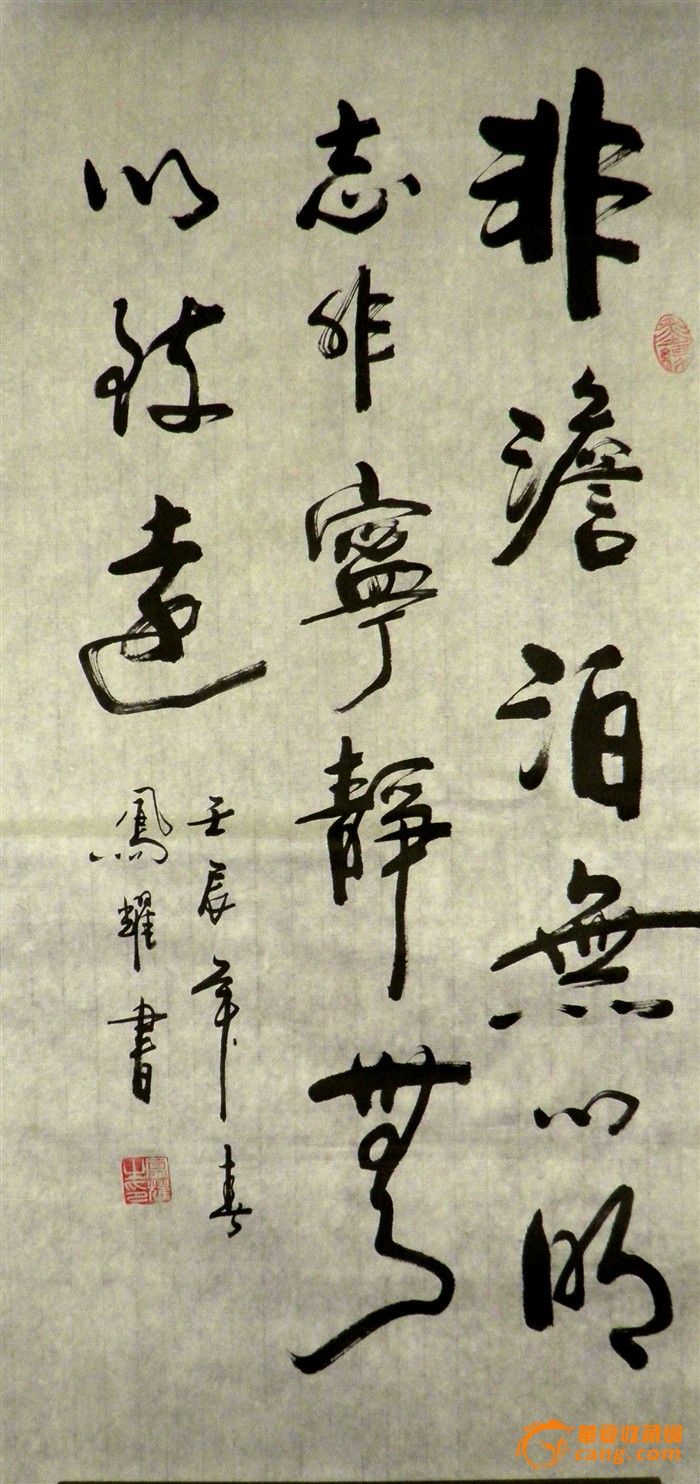 非澹泊無以明
志非寧靜無
以致遠
壬辰年春
鳳耀書
華夏收藏網
cang.com